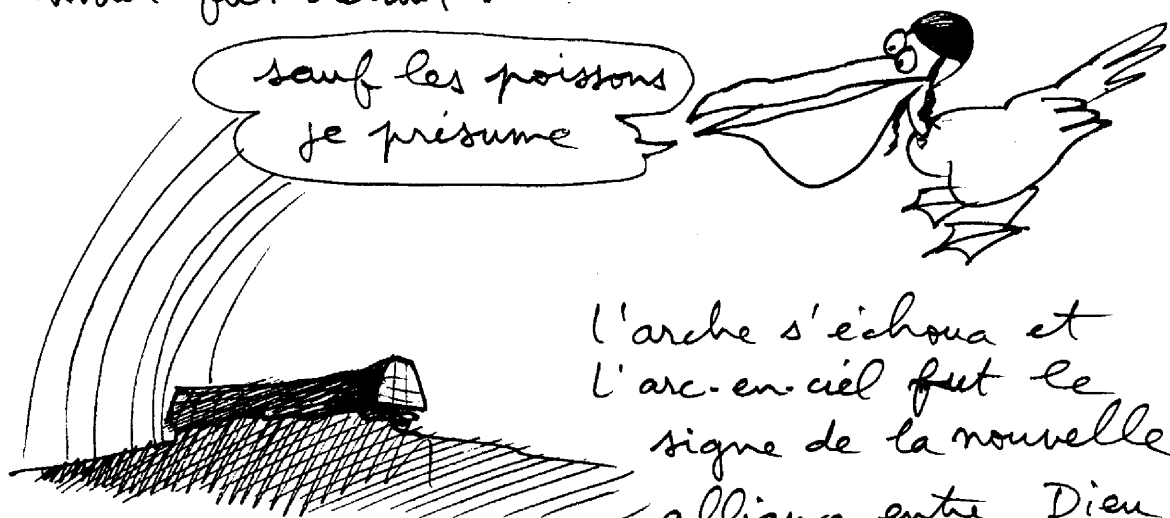 fut
sauf les poissons
je présume
l'arche s'échoua et
l'arc-en-ciel fut le
signe de la nouvelle
alliance entre Dieu